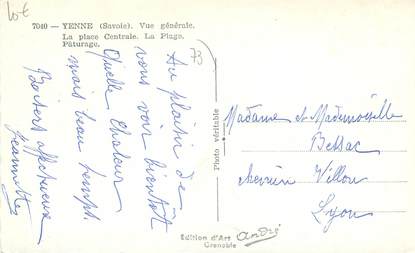 7040 - YENNE (Savoie). Vue générale.
La place Centrale. La Plage.
Pâturage.
73
Au plaisir de
vous voir bientôt
Quelle chaleur
mais beau temps.
Baisers affectueux
Jeannette
Photo véritable
Madame et Mademoiselle
Bessac
chemin Villon
Lyon
Edition d'Art André
Grenoble